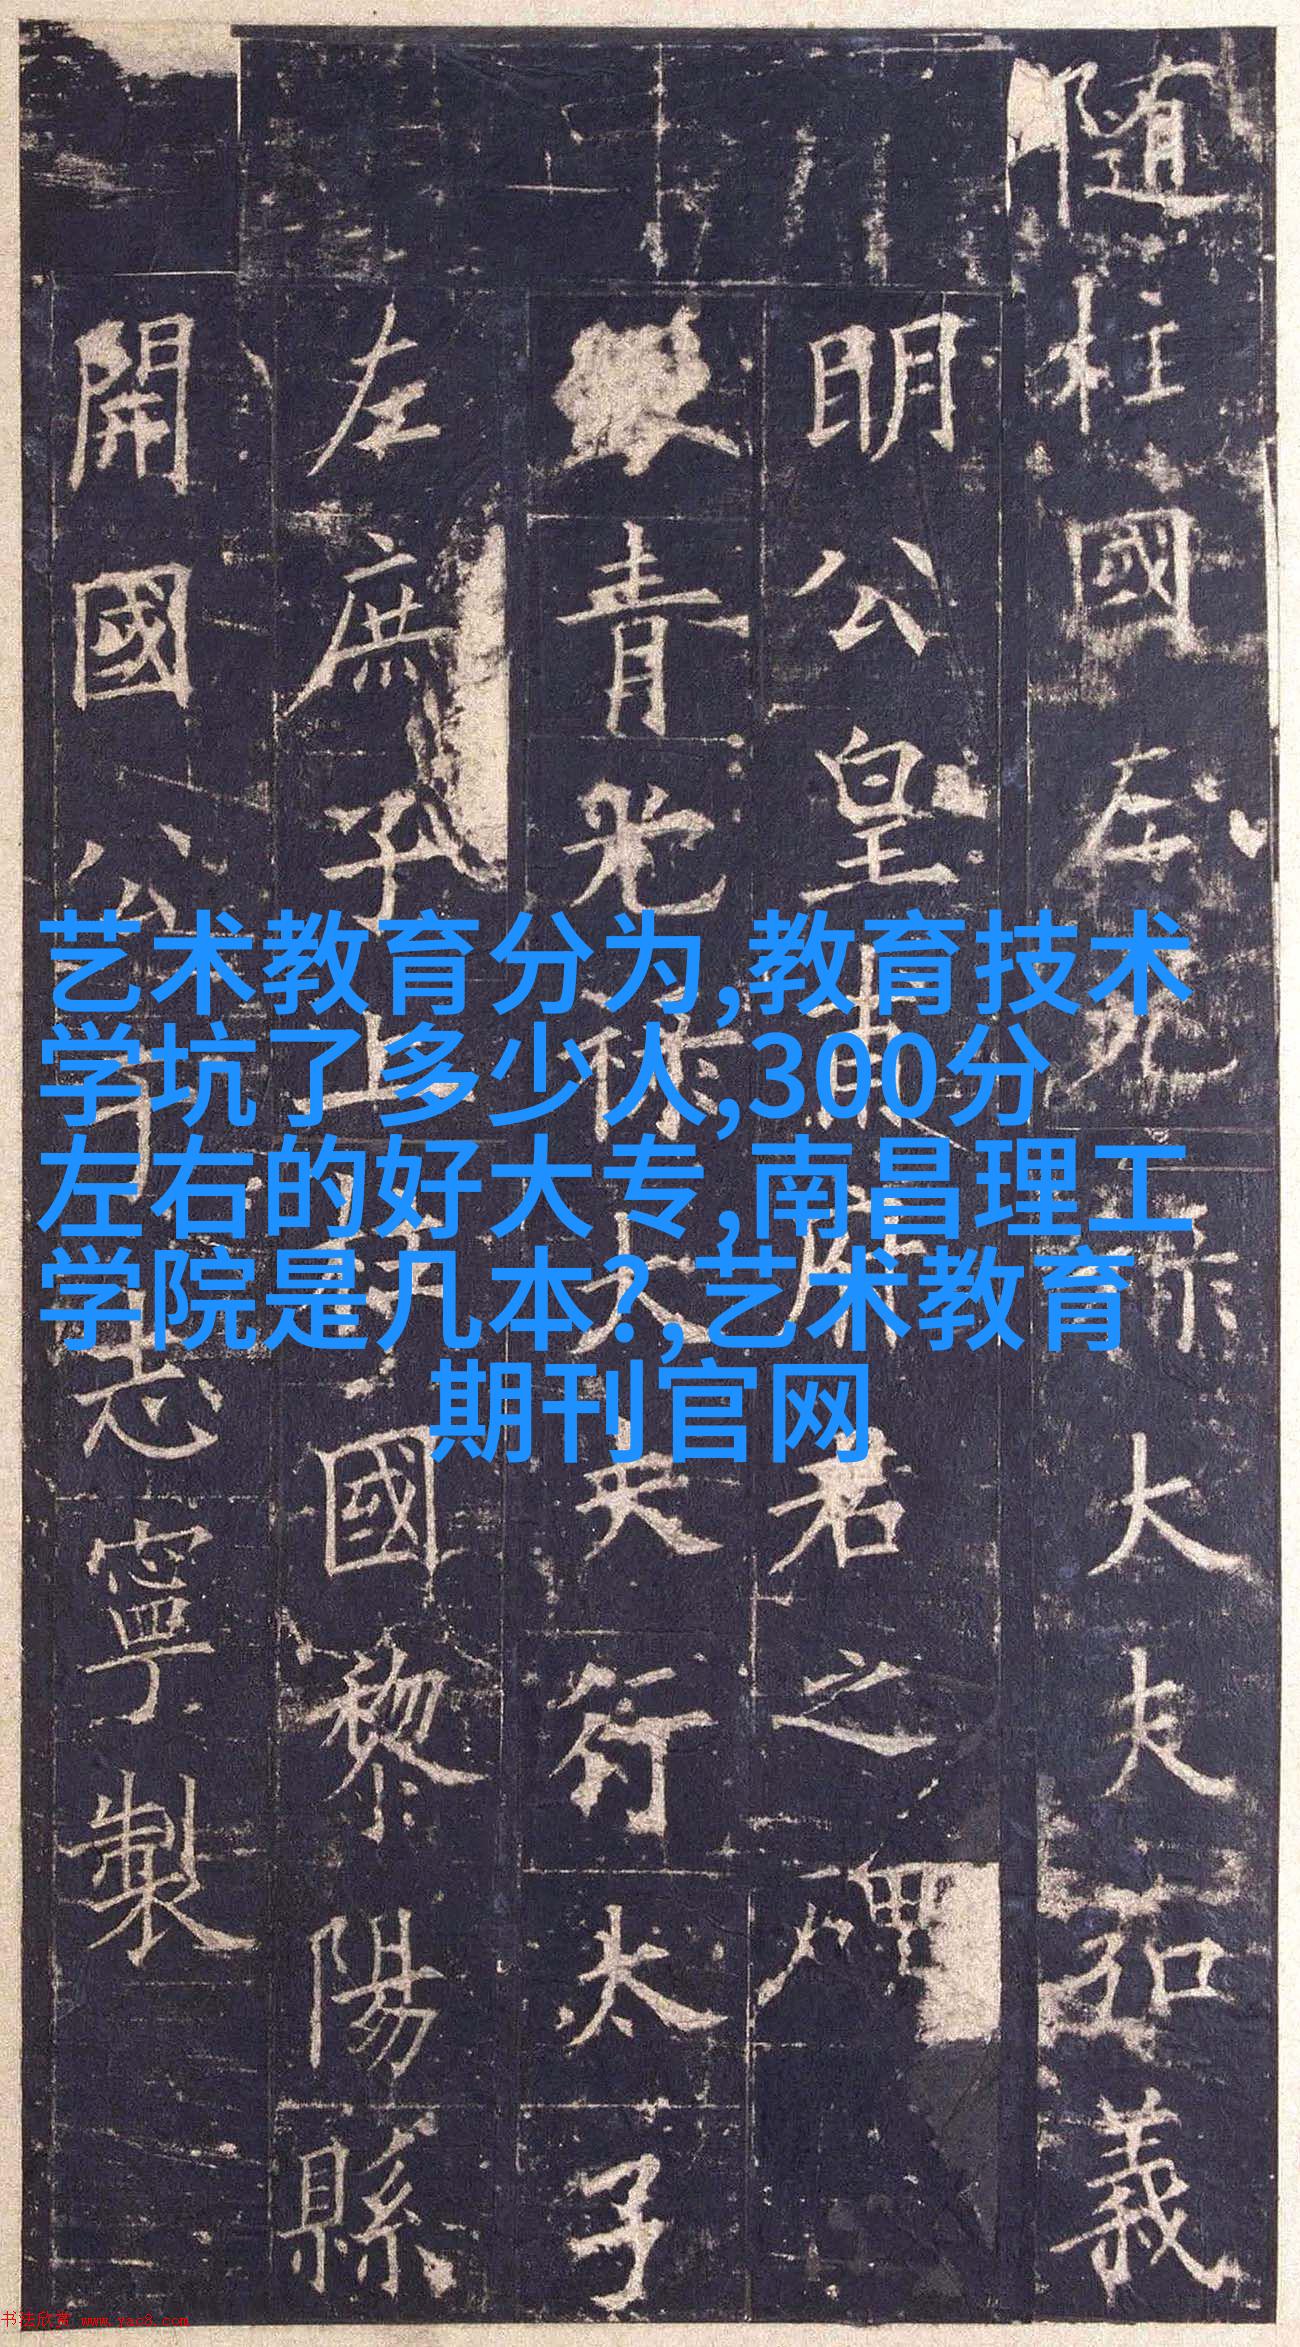 隨柱國左光祿大夫弘義
明公皇甫府君之碑
銀青光祿大夫行太子
左庶子上柱國黎陽縣
開國公于志寧製
艺术教育分为,教育技术
学坑了多少人,300分
左右的好大专,南昌理工
学院是几本?,艺术教育
期刊官网
书法欣赏 www.yac8.com